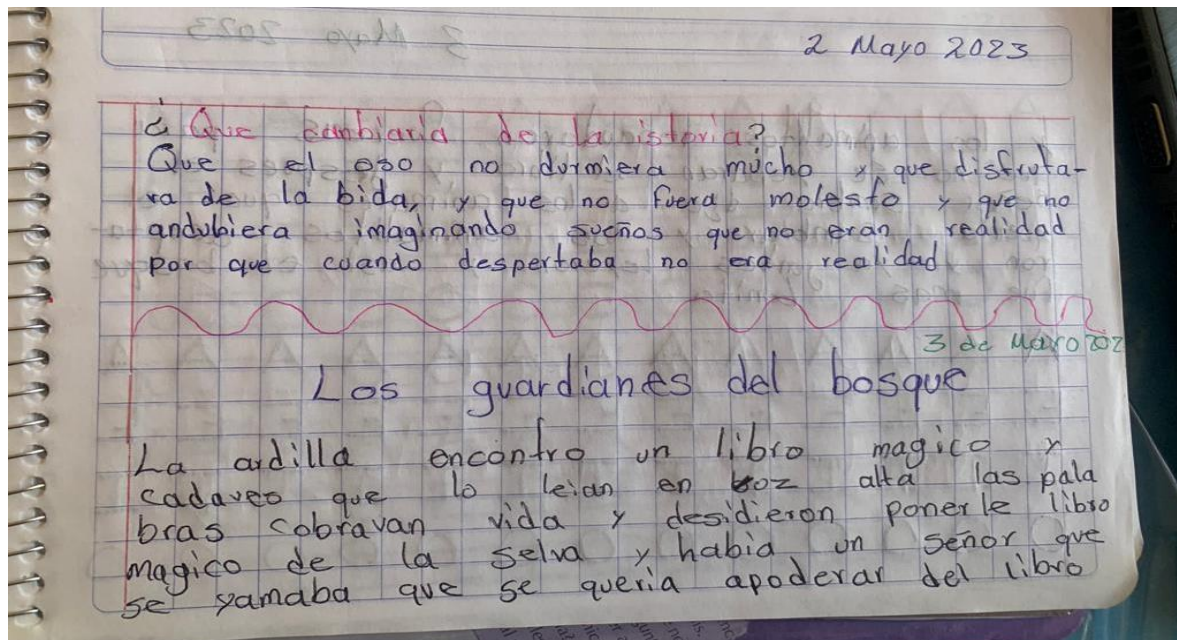 2 Mayo 2023
¿Que canbiaria de la istoria?
Que el oso no durmiera mucho y que disfruta-
ra de la bida, y que no fuera molesto y que no
andubiera imaginando sueños que no eran realidad
por que cuando despertaba no era realidad
3 de Mayo 202
Los guardianes del bosque
La ardilla encontro un libro magico y
cadaves que lo leian en voz alta las pala
bras cobravan vida y desidieron ponerle libro
magico de la selva y habia un señor que
se yamaba que se queria apoderar del libro